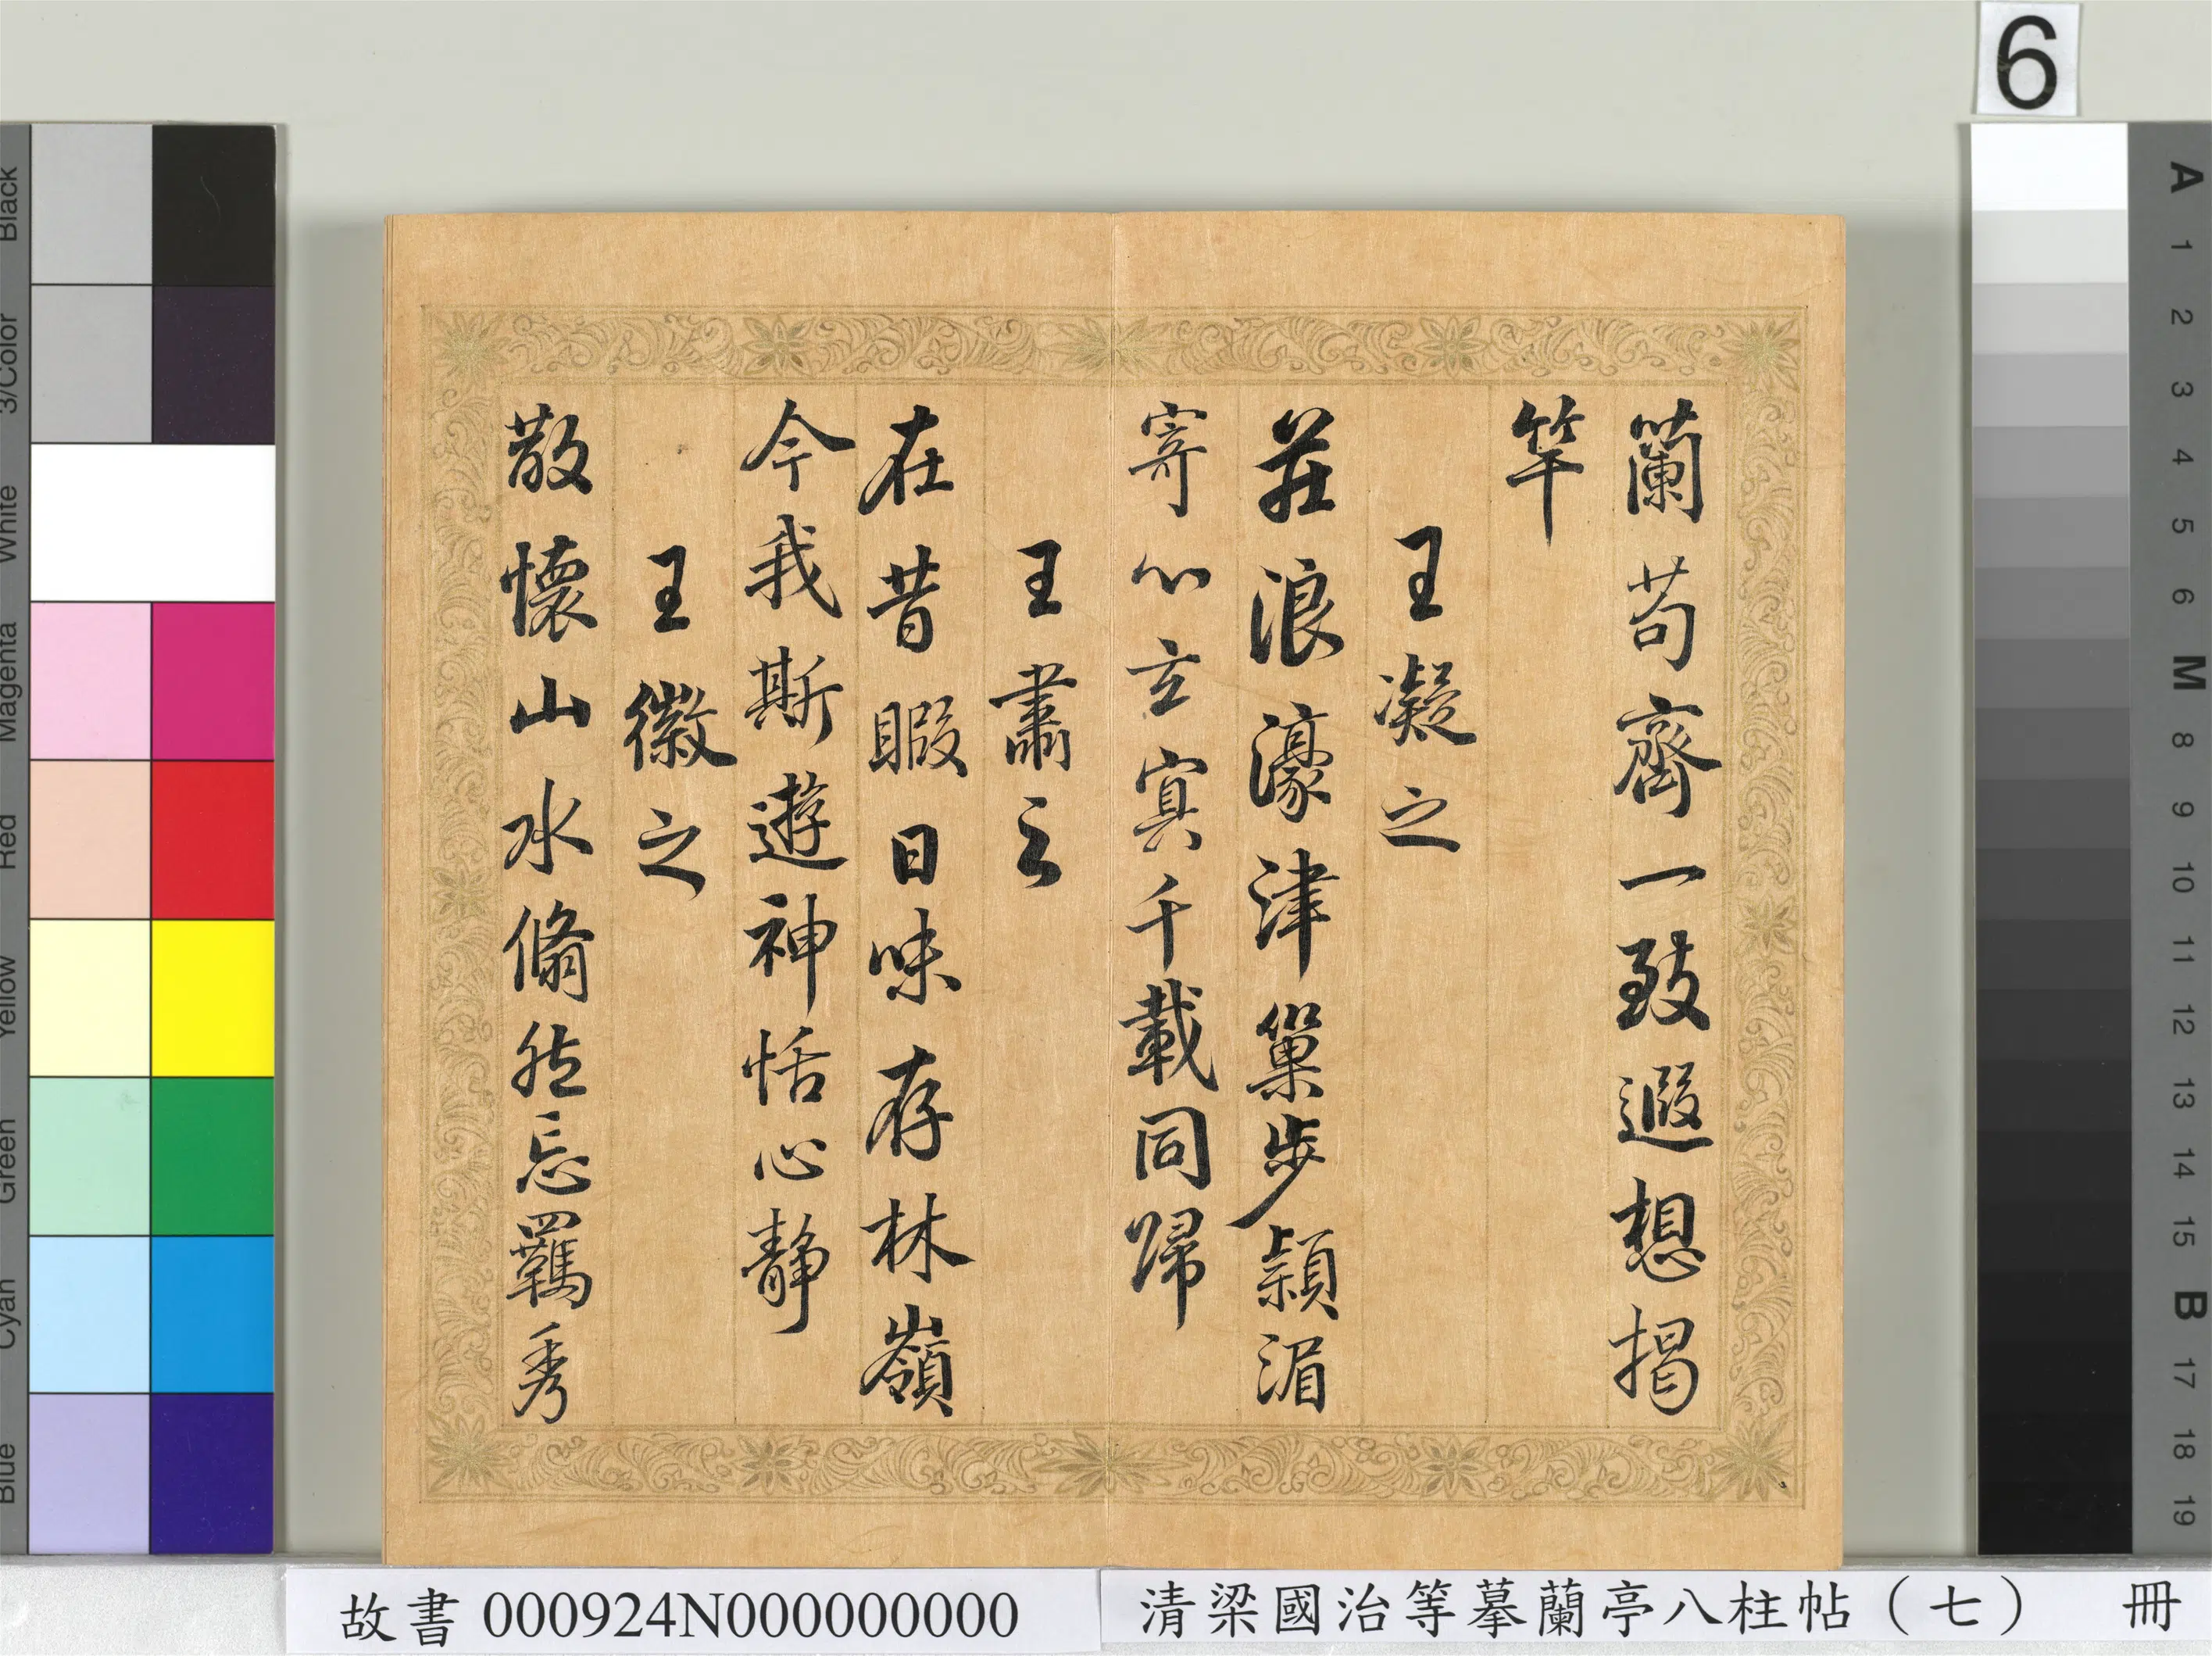 6
蘭苟齊一致遐想揭
竿
王凝之
莊浪濠津巢步潁湄
寄心玄冥千載同歸
王肅之
在昔暇日味存林嶺
今我斯遊神恬心靜
王徽之
散懷山水翛然忘羈秀
故書 000924N000000000
清梁國治等摹蘭亭八柱帖（七） 冊
Black
3/Color
White
Magenta
Red
Yellow
Green
Cyan
Blue
A
1
2
3
4
5
6
M
8
9
10
11
12
13
14
15
B
17
18
19